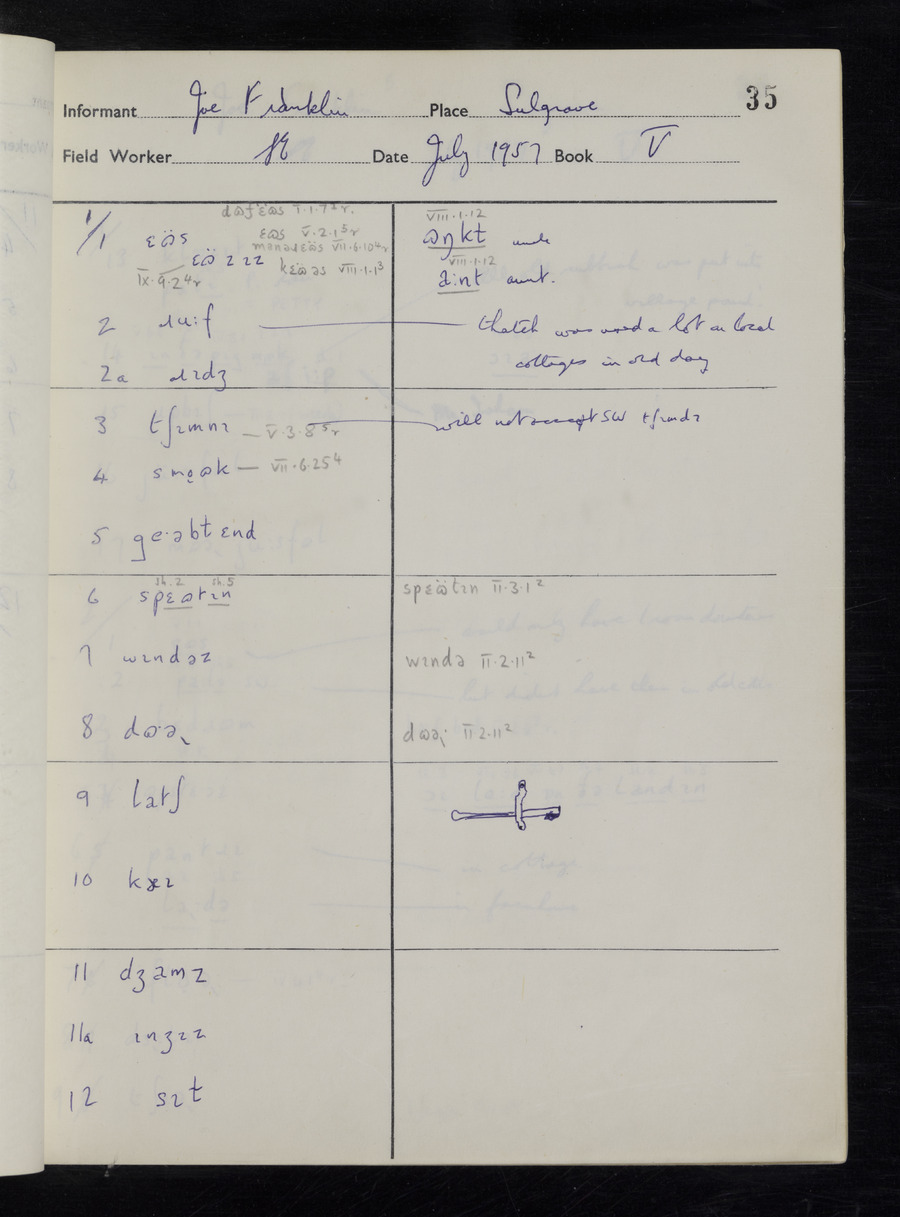 35
Informant Joe Franklin Place Sulgrave
Field Worker Date July 1957 Book V
V.1.7²r.
1/1 ɛɷ̈s ɛɷs V.2.1⁵r
VII.6.10⁴r
ɛɷ̈zɪz kɛɷ̈əs VIII.1.1³
IX.9.2⁴r
VIII.1.12
ɷŋkɫ uncle
VIII.1.12
a:nt aunt.
2 ɹu:f thatch was used a lot on local
cottages in old days
2a ɹɪdʒ
3 tʃɪmnɪ — V.3.8⁵r will not accept SW
4 smọɷk — VII.6.25⁴
5
sh.2 sh.5
6 spɛɷtɪn spɛɷ̈tɪn II.3.1²
7 wɪndəz wɪndə II.2.11²
8 dɷ:ə II 2.11²
9 latʃ
10
11 dʒamz
11a ɪnʒɪz
12 sɪt